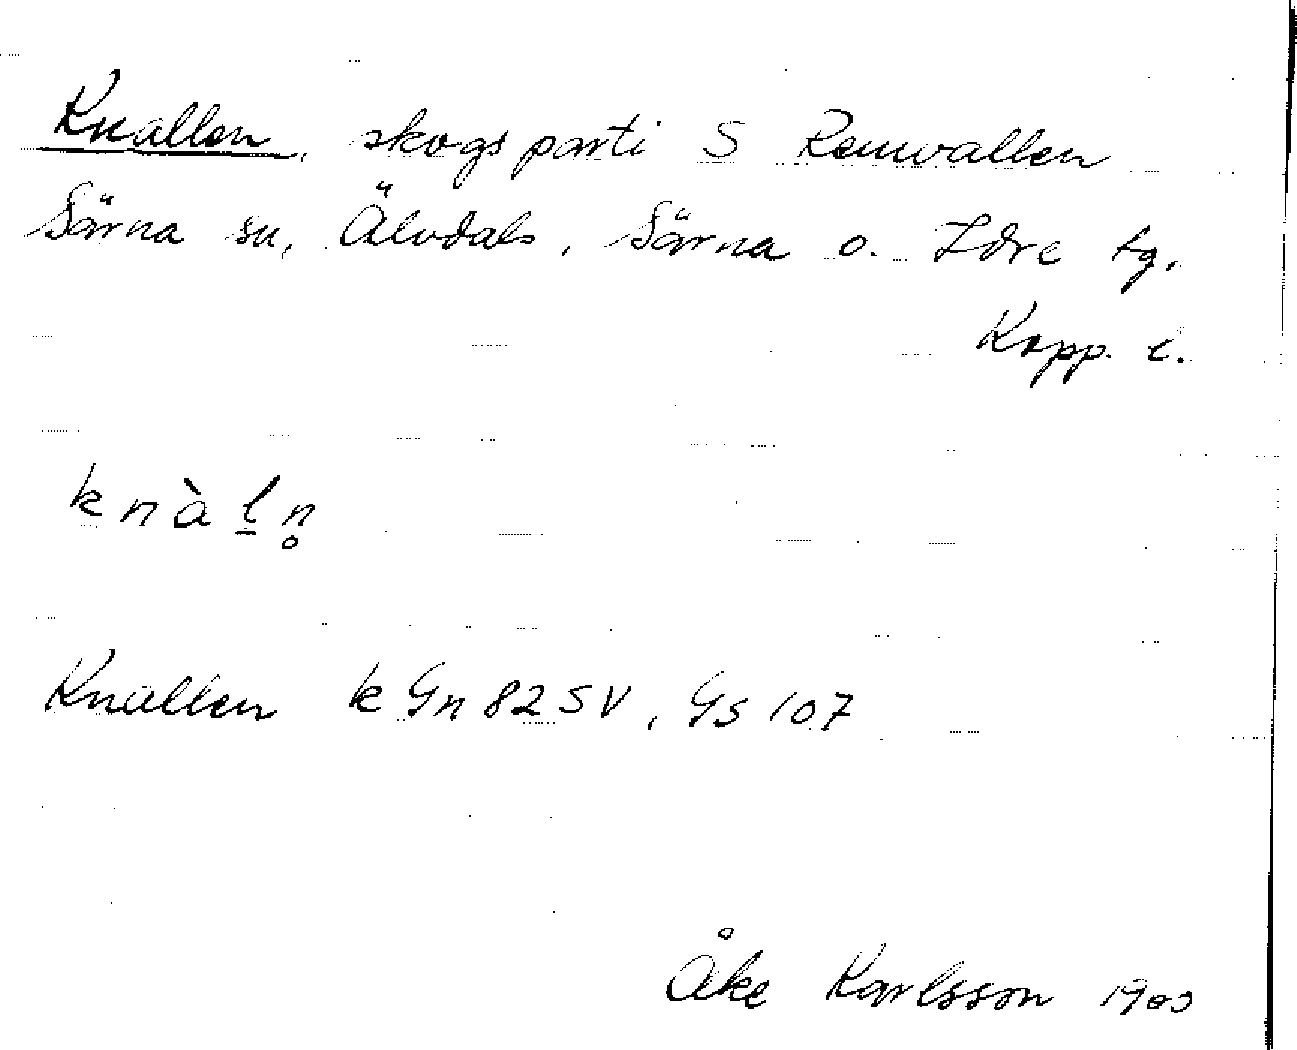 Knallen, skogsparti S Remvallen
Särna sn, Älvdals, Särna o. Idre tg.
Kopp. l.
knàl̠n̥
Knallen k Gn 82 SV, Gs 107
Åke Karlsson 1900